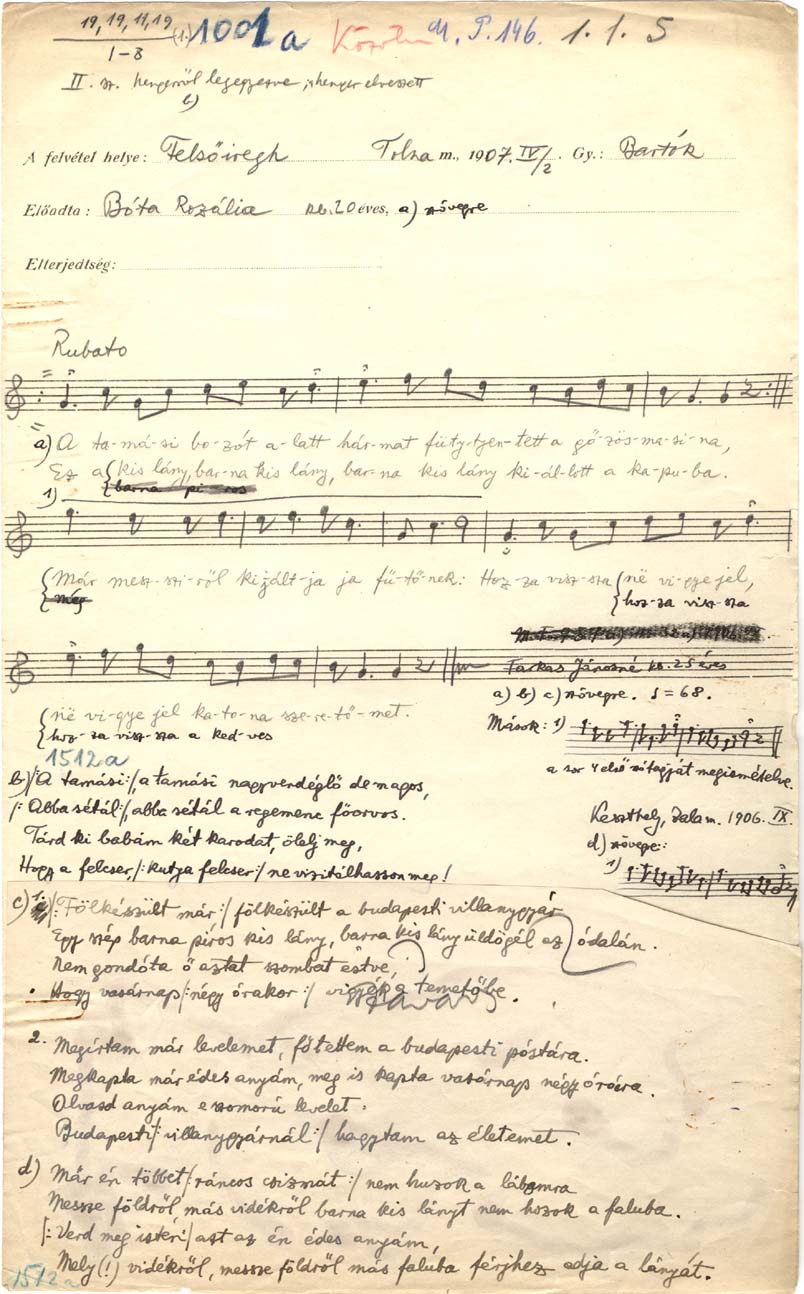 19, 19, 11, 19
1-8
(1.) 1001a M. P. 146. 1. 1. 5
II. sz. hengerről lejegyezve, henger elveszett
b)
A felvétel helye: Felsőiregh Tolna m., 1907. IV/2 Gy.: Bartók
Előadta: Bóta Rozália kb. 20 éves, a) szövegre
Elterjedtség:
Rubato
a) A ta-má-si bo-zót a-latt hár-mat fü-tty-tjen-tett a gő-zös-ma-si-na,
Ez a kis lány, bar-na kis lány, bar-na kis lány ki-ál-lott a ka-pu-ba.
barna pi ros
1)
Már mesz-szi-ről kijált-ja ja fü-tő-nek: Hoz-za visz-sza në vi-gye jel,
még hoz-za visz-sza
Farkas Jánosné kb. 25 éves
në vi-gye jel ka-to-na sze-re-tő-met.
hoz-za visz-sza a ked-ves
a) b) c) szövegre. = 68.
Mások: 1)
a sor 4 első szótagját megismételve.
1512a
b) /: A tamási :/, a tamási nagyvendéglő de magos,
/: Abba sétál :/ abba sétál a regemenc főorvos.
Tárd ki babám két karodat, ölelj meg,
Hogy a felcser, /: kutya felcser :/ ne vizitálhasson meg!
Keszthely, Zala m. 1906. IX.
d) szövege:
1)
c) 1. /: Fölkészült már :/ fölkészült a budapesti villanygyár
Egy szép barna píros kis lány, barna kis lány üldögél az ódalán.
Nem gondóta ő aztat szombat estve,
Hogy vasárnap /: négy órakor :/ vigyék a temetőbe.
2. Megírtam már levelemet, föltettem a budapesti póstára.
Megkapta már édes anyám, meg is kapta vasárnap négy óróra.
Olvasd anyám e szomorú levelet.
Budapesti /: villanygyárnál :/ hagytam az életemet.
d) Már én többet /: ráncos csizmát :/ nem huzok a lábomra
Messze földről más vidékről barna kis lányt nem hozok a faluba.
/: Verd meg istën :/ azt az én édes anyám,
Mely (!) vidékről, messze földről más faluba férjhez adja a lányát.
1512a